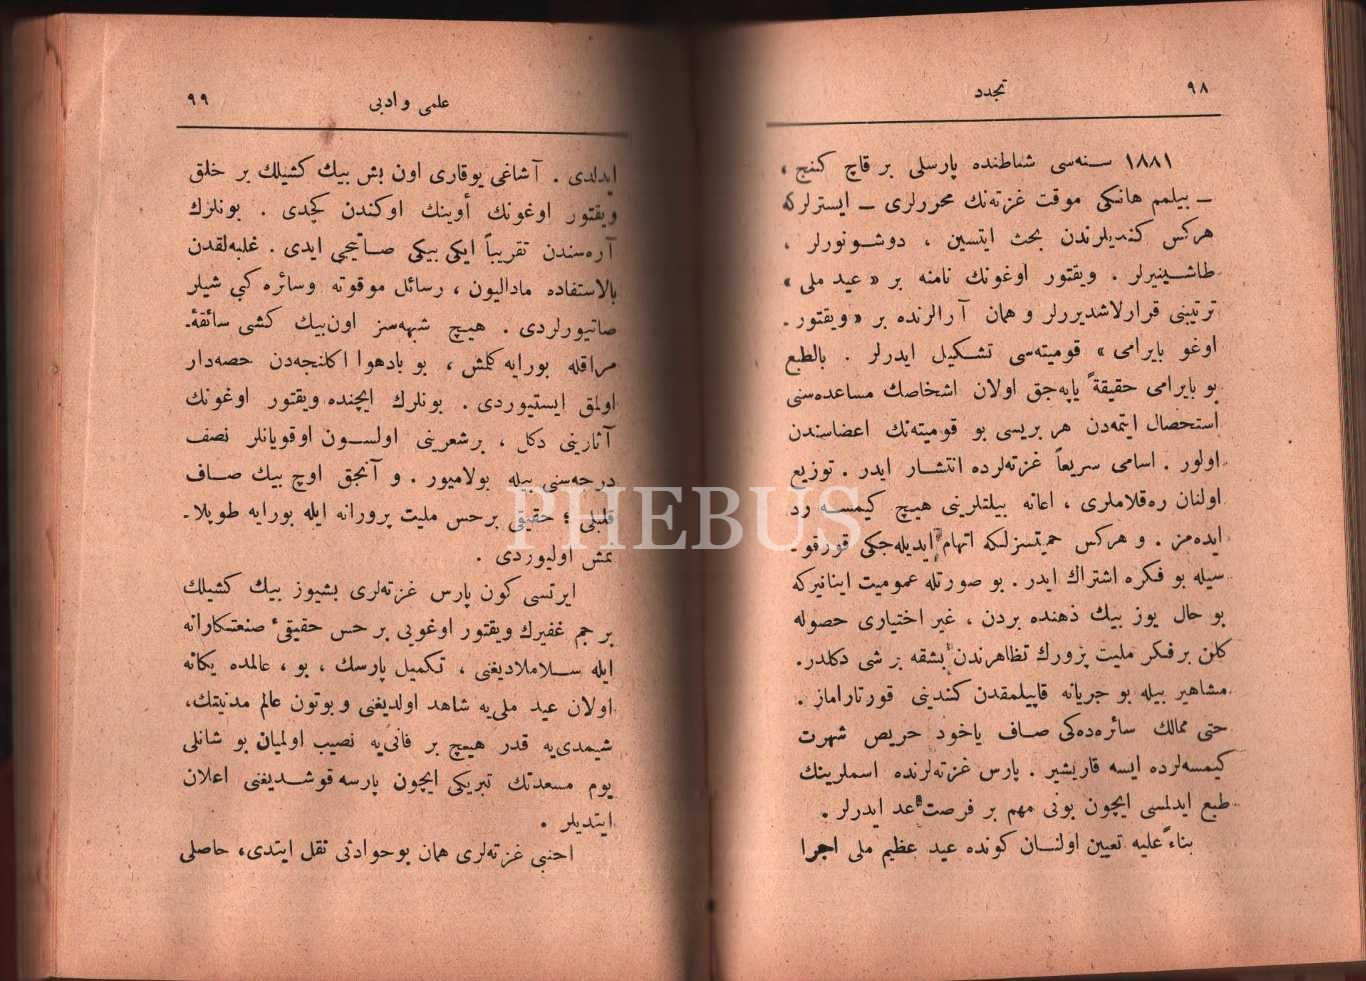 ٩٨
تجدد
١٨٨١ سنه‌سی شباطنده پارسلی بر قاچ کنج ،
ـ بیلمم هانکی موقت غزته‌نك محررلری ـ ایسترلرکه
هرکس کندیلرندن بحث ایتسین ، دوشونورلر ،
طاشینیرلر . ویقتور اوغونك نامنه بر « عید ملی »
ترتیبنی قرارلاشدیررلر و همان آرالرنده بر « ویقتور ـ
اوغو بایرامی » قومیته‌سی تشکیل ایدرلر . بالطبع
بو بایرامی حقیقةً یاپه‌جق اولان اشخاصك مساعده‌سنی
استحصال ایتمه‌دن هر بریسی بو قومیته‌نك اعضاسندن
اولور . اسامی سریعاً غزته‌لرده انتشار ایدر . توزیع
اولنان ره‌قلاملری ، اعانه بیلتلرینی هیچ کیمسه رد
ایده‌مز . و هرکس حمیتسزلکه اتهام ایدیله‌جکی قورقو ـ
سیله بو فکره اشتراك ایدر . بو صورتله عمومیت اینانیرکه
بو حال یوز بیك ذهنده بردن ، غیر اختیاری حصوله
کلن بر فکر ملیت پرورك تظاهرندن بشقه بر شی دکلدر.
مشاهیر بیله بو جریانه قاپیلمقدن کندینی قورتاراماز .
حتی ممالك سائره‌ده‌کی صاف یاخود حریص شهرت
کیمسه‌لرده ایسه قاریشیر . پارس غزته‌لرنده اسملرینك
طبع ایدلمسی ایچون بونی مهم بر فرصت عد ایدرلر .
بناءً علیه تعیین اولنان کونده عید عظیم ملی اجرا
علمی و ادبی
٩٩
ایدلدی . آشاغی یوقاری اون بش بیك کشیلك بر خلق
ویقتور اوغونك أوینك اوکندن کچدی . بونلرك
آره‌سندن تقریباً ایکی بیکی صاتیجی ایدی . غلبه‌لقدن
بالاستفاده مادالیون ، رسائل موقوته وسائره کبی شیلر
صاتیورلردی . هیچ شبهه‌سز اون‌بیك کشی سائقۀ
مراقله بورایه کلمش ، بو بادهوا اکلنجه‌دن حصه‌دار
اولمق ایستیوردی . بونلرك ایچنده ویقتور اوغونك
آثارینی دکل ، بر شعرینی اولسون اوقویانلر نصف
درجه‌سنی بیله بولامیور . و آنجق اوچ بیك صاف
قلبلی ؛ حقیقی بر حس ملیت پرورانه ایله بورایه طوپلا ـ
نمش اولیوردی .
ایرتسی کون پارس غزته‌لری بشیوز بیك کشیلك
بر جم غفیرك ویقتور اوغویی بر حس حقیقیٔ صنعتکارانه
ایله سلاملادیغنی ، تکمیل پارسك ، بو ، عالمده یکانه
اولان عید ملی‌یه شاهد اولدیغنی و بوتون عالم مدنیتك،
شیمدی‌یه قدر هیچ بر فانی‌یه نصیب اولمیان بو شانلی
یوم مسعدتك تبریکی ایچون پارسه قوشدیغنی اعلان
ایتدیلر .
اجنبی غزته‌لری همان بو حوادثی نقل ایتدی، حاصلی
PHEBUS